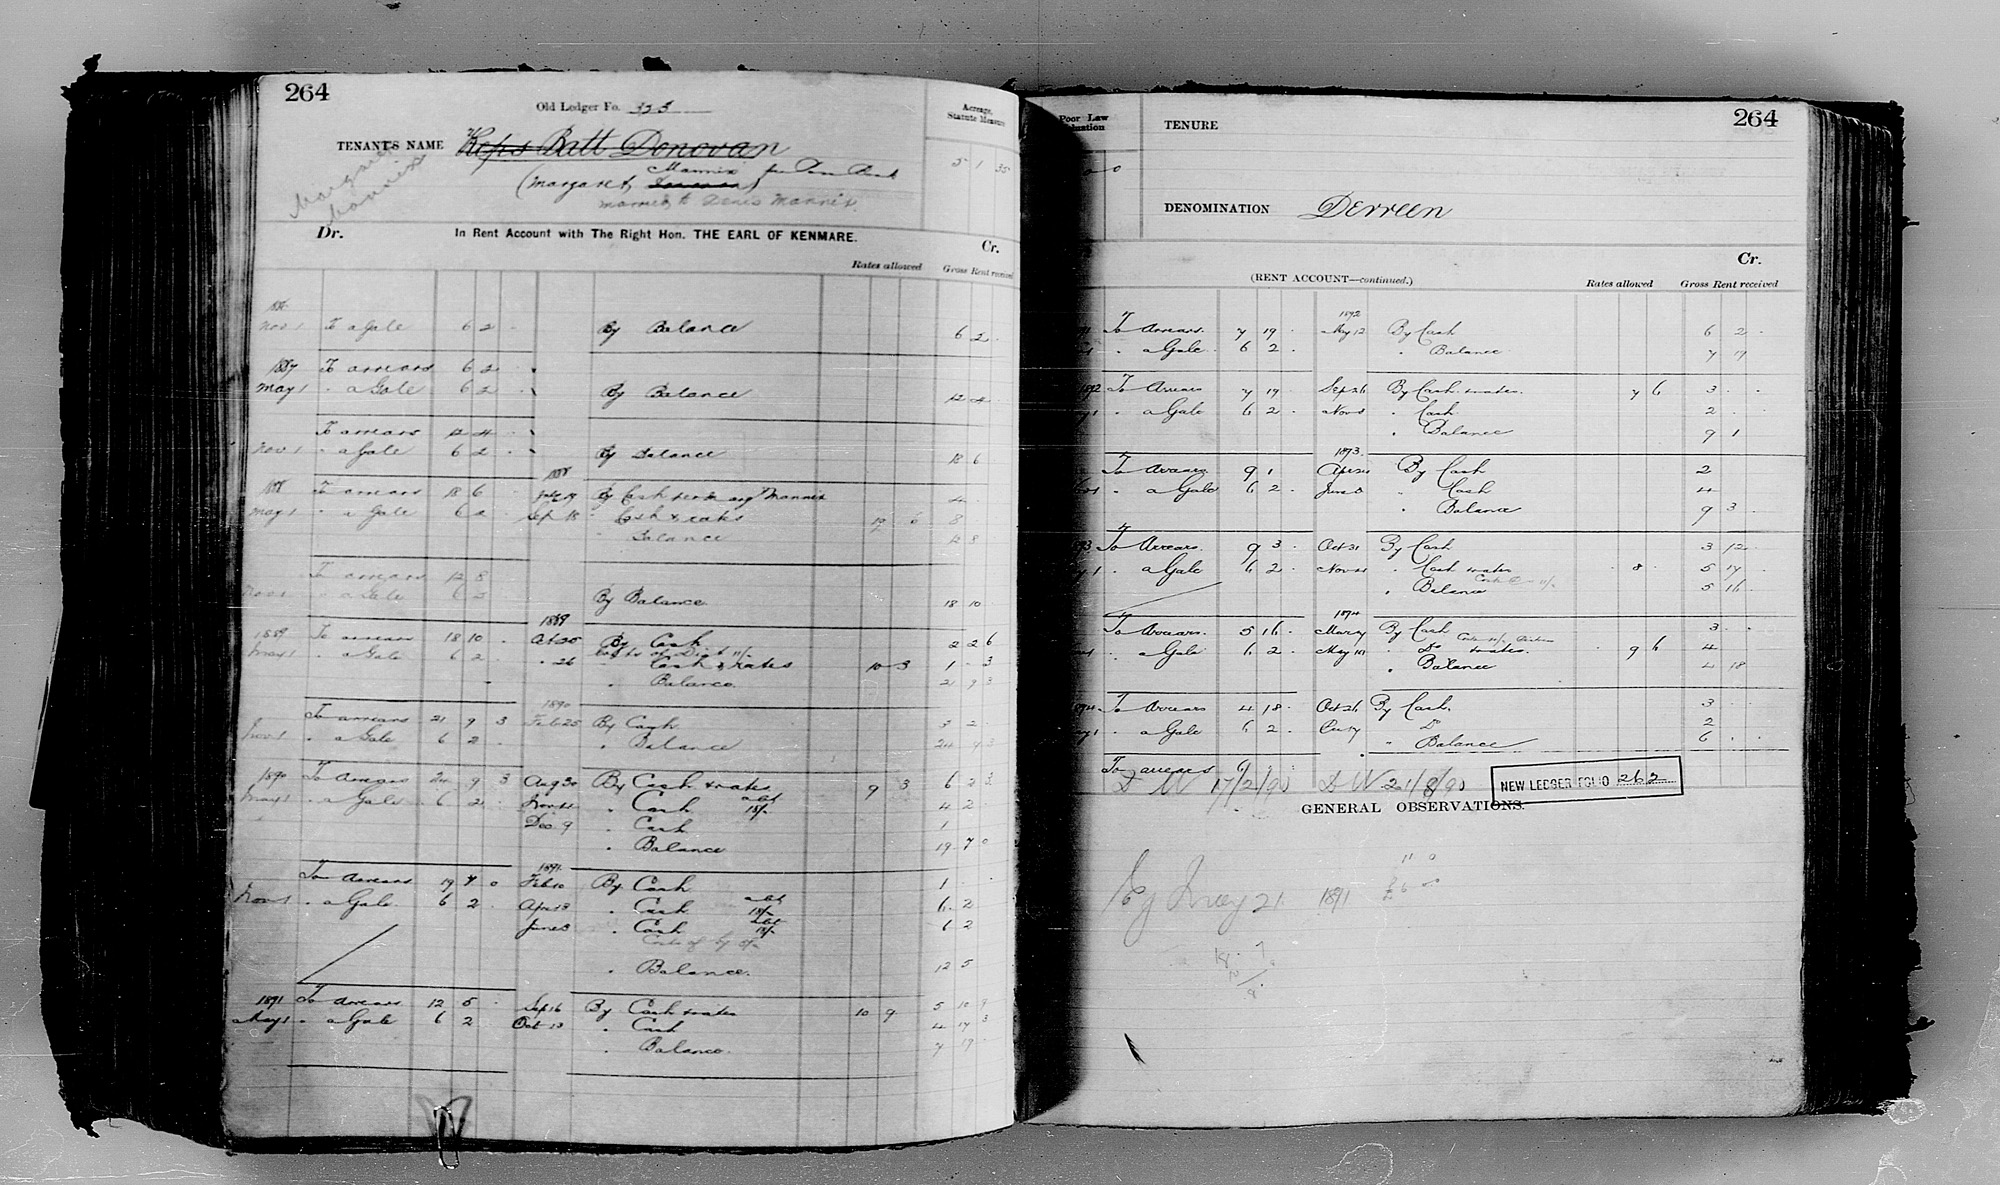 264
Old Ledger Fo.
TENANTS NAME Reps Batt Donovan
Margaret Mannix
Mannix
(Margaret,
married to Denis Mannix.
Acreage, Statute Measure
5 1 35
Dr. In Rent Account with The Right Hon. THE EARL OF KENMARE. Cr.
Rates allowed Gross Rent received
Nov 1 To a Gale 6 2 . By Balance 6 2 .
1887 To arrears 6 2 .
May 1 " a Gale 6 2 By Balance 12 4
To arrears 12 4 .
Nov 1 " a Gale 6 2 By Balance 18 6
1888
1888 To arrears 18 6 July 19 By Cash Mannix 4
May 1 " a Gale 6 2 Sep 18 " Cash & rates 8
" Balance 12 8
To arrears 12 8
Nov 1 " a Gale 6 2 By Balance 18 10
1889
1889 To arrears 18 10 . Oct 25 By Cash 2 2 6
May 1 " a Gale 6 2 . " 26 Cash & rates 10 3 1 - 3
" Balance 21 9 3
1890
To arrears 21 9 3 Feb 25 By Cash 3 2
Nov 1 " a Gale 6 2 . " Balance 24 9 3
1890 To Arrears 24 9 3 Aug 30 By Cash & rates 9 3 6 2
May 1 " a Gale 6 2 Nov " Cash 4 2
Dec 9 " Cash 1
" Balance 19 7 0
1891
To Arrears 19 7 0 Feb 10 By Cash 1 . .
Nov 1 " a Gale 6 2 . Apr 13 " Cash 6 2
June 3 " Cash 6 2
" Balance. 12 5
1891 To Arrears 12 5 . Sep 16 By Cash & rates 10 9 5 10 9
May 1 " a Gale 6 2 Oct 13 " Cash 4 17 3
" Balance. 7 19
Poor Law
264
TENURE
DENOMINATION Derreen
Cr.
(RENT ACCOUNT—continued.) Rates allowed Gross Rent received
1892
To Arrears. 7 19 . May 12 By Cash 6 2 .
" a Gale 6 2 . " Balance 7 19
To Arrears 7 19 . Sep 26 By Cash & rates. 7 6 3 . .
" a Gale 6 2 . Nov " Cash 2 .
" Balance 9 1
1893.
To Arrears. 9 1 Apr 24 By Cash 2
" a Gale 6 2 . June " Cash 4
" Balance 9 3
To Arrears. 9 3 . Oct 31 By Cash 3 12
" a Gale 6 2 . Nov " Cash & rates . 8 . 5 17
" Balance 5 16 .
1894
To Arrears. 5 16 . Mar By Cash 3 . .
" a Gale. 6 2 . May " Do & rates. 9 6 4
" Balance 4 18
To Arrears 4 18 . Oct 26 By Cash. 3 .
" a Gale 6 2 . " Do 2
" Balance 6 . .
To arrears 6
17/2/90 D W 21/8/90
NEW LEDGER FOLIO 262
GENERAL OBSERVATIONS.
11 0
Ej May 21 1891